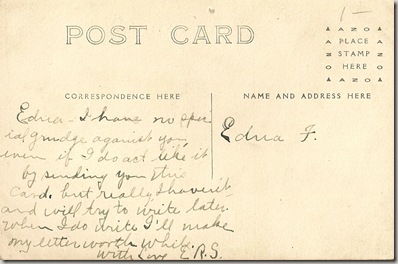 1-
POST CARD
AZO
PLACE
STAMP
HERE
AZO
CORRESPONDENCE HERE
NAME AND ADDRESS HERE
Edna - I have no spec
ial grudge against you,
even if I do act like it
by sending you this
card. but really I haven't
and will try to write later.
When I do write I'll make
my letter worth while.
With Love E.R.S.
Edna F.